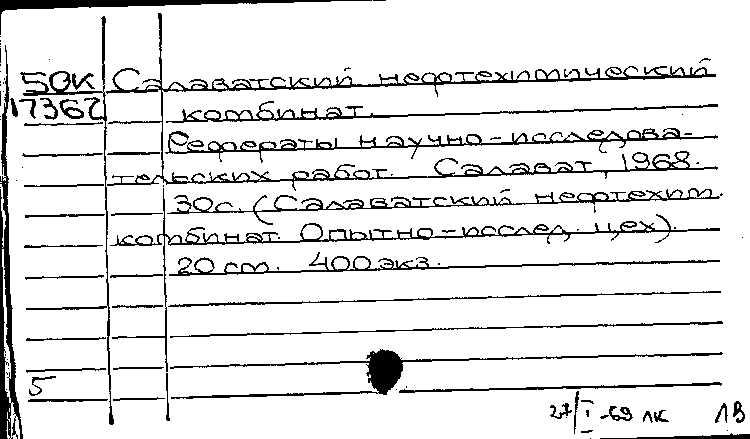 50К Салаватский нефтехимический
17362 комбинат.
Рефераты научно-исследова-
тельских работ. Салават, 1968.
30с. (Салаватский нефтехим.
комбинат. Опытно-исслед. цех).
20 cm. 400 экз.
5
27/I-69 лк 1В